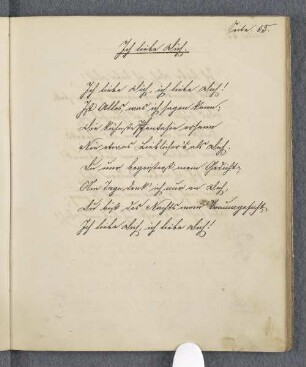 Seite 65.
Ich liebe Dich.
Ich liebe Dich, ich liebe Dich!
Ist Alles was ich sagen kann;
Die kühnste Phantasie ersann
Nie etwas Lieblicher's als Dich.
Du nur begeisterst mein Gedicht,
Am Tage denk' ich nur an Dich,
Du bist des Nachts mein Traumgesicht,
Ich liebe Dich, ich liebe Dich!